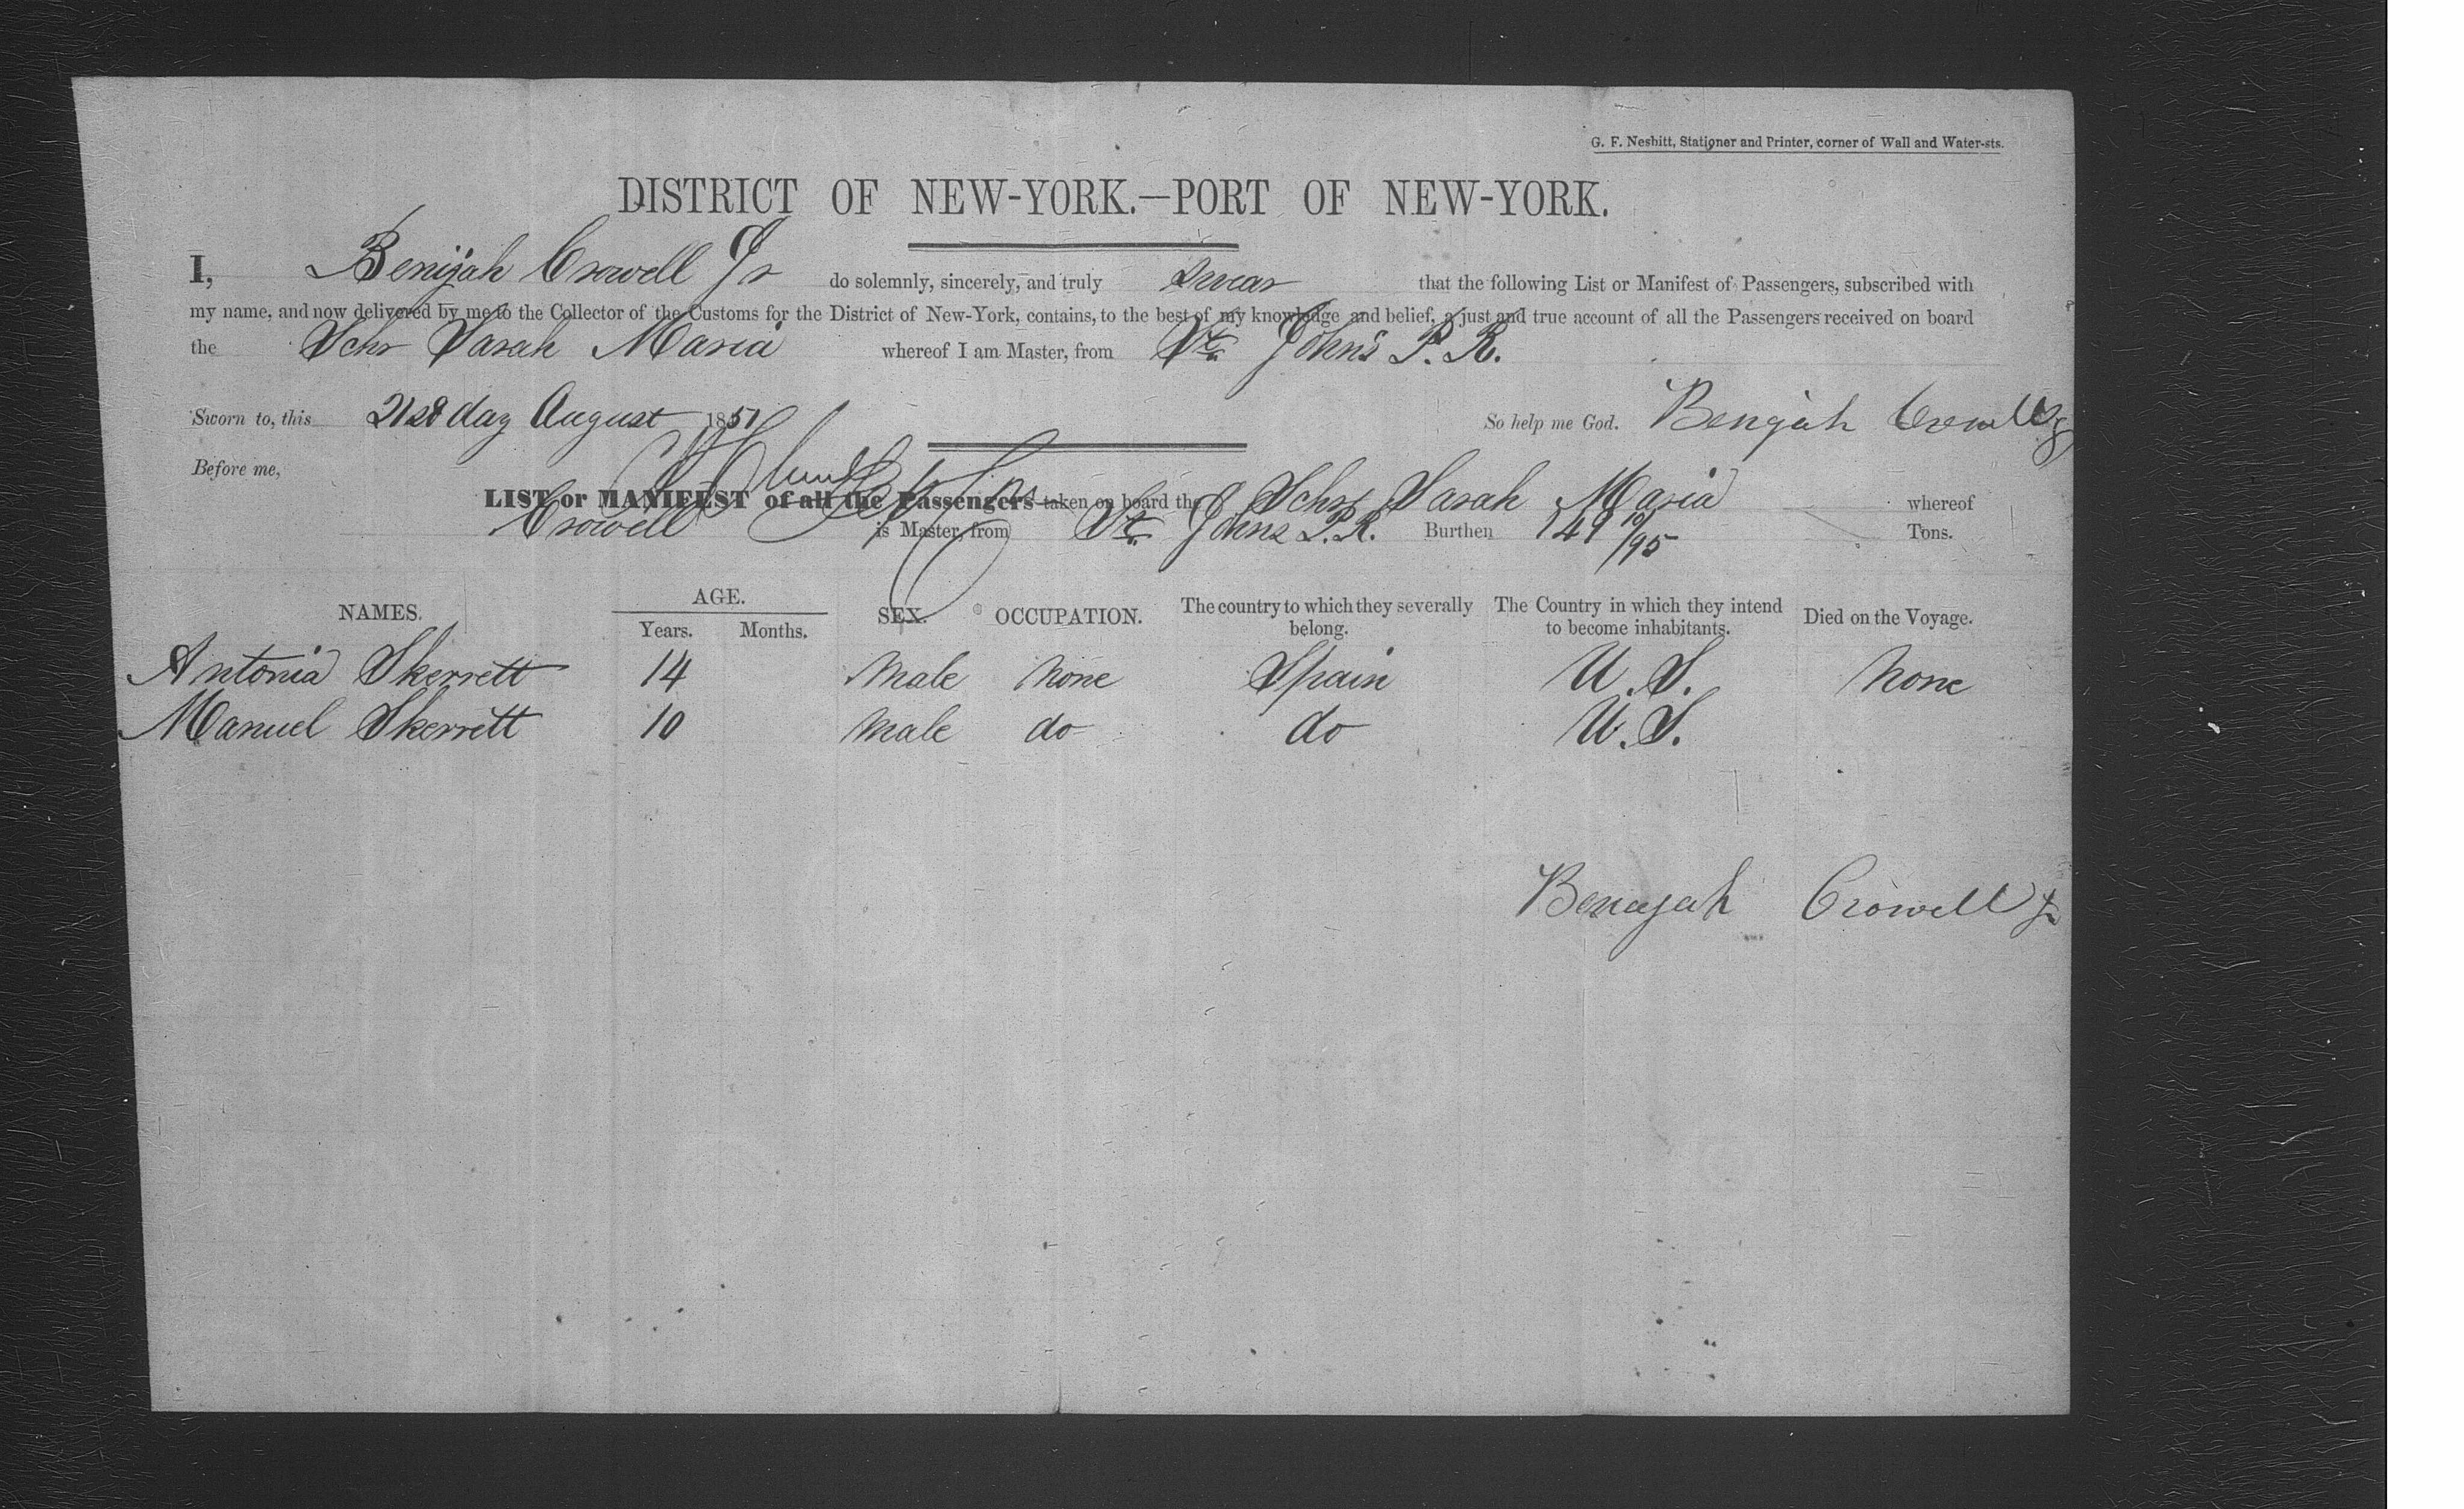 G. F. Nesbitt, Stationer and Printer, corner of Wall and Water-sts.
DISTRICT OF NEW-YORK.—PORT OF NEW-YORK.
I, Benijah Crowell Jr do solemnly, sincerely, and truly swear that the following List or Manifest of Passengers, subscribed with
my name, and now delivered by me to the Collector of the Customs for the District of New-York, contains, to the best of my knowledge and belief, a just and true account of all the Passengers received on board
the Schr Sarah Maria whereof I am Master, from St. Johns P. R.
Sworn to, this 21st day August 1851 So help me God. Benajah Crowell Jr
Before me,
LIST or MANIFEST of all the Passengers taken on board the Schr Sarah Maria whereof
Crowell is Master, from St. Johns P.R. Burthen 149 10/95 Tons.
NAMES. AGE. SEX. OCCUPATION. The country to which they severally belong. The Country in which they intend to become inhabitants. Died on the Voyage.
Years. Months.
Antonia Skerrett 14 male none Spain U.S. none
Manuel Skerrett 10 male do do U.S.
Benajah Crowell Jr